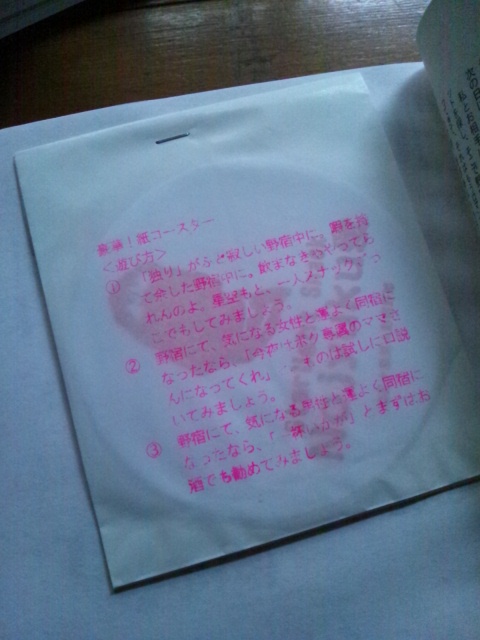 豪華!紙コースター
<遊び方>
① 「独り」がふと寂しい野宿中に、暇を持
て余した野宿中に。飲まなきゃやってら
れんのよ、星空もと、一人スナックごっ
こでもしてみましょう。
② 野宿にて、気になる女性と運よく同宿に
なったなら、「今夜はボク専属のママさ
んになってくれ」 ものは試しに口説
いてみましょう。
③ 野宿にて、気になる男性と運よく同宿に
なったなら、「 」とまずはお
酒でも勧めてみましょう。